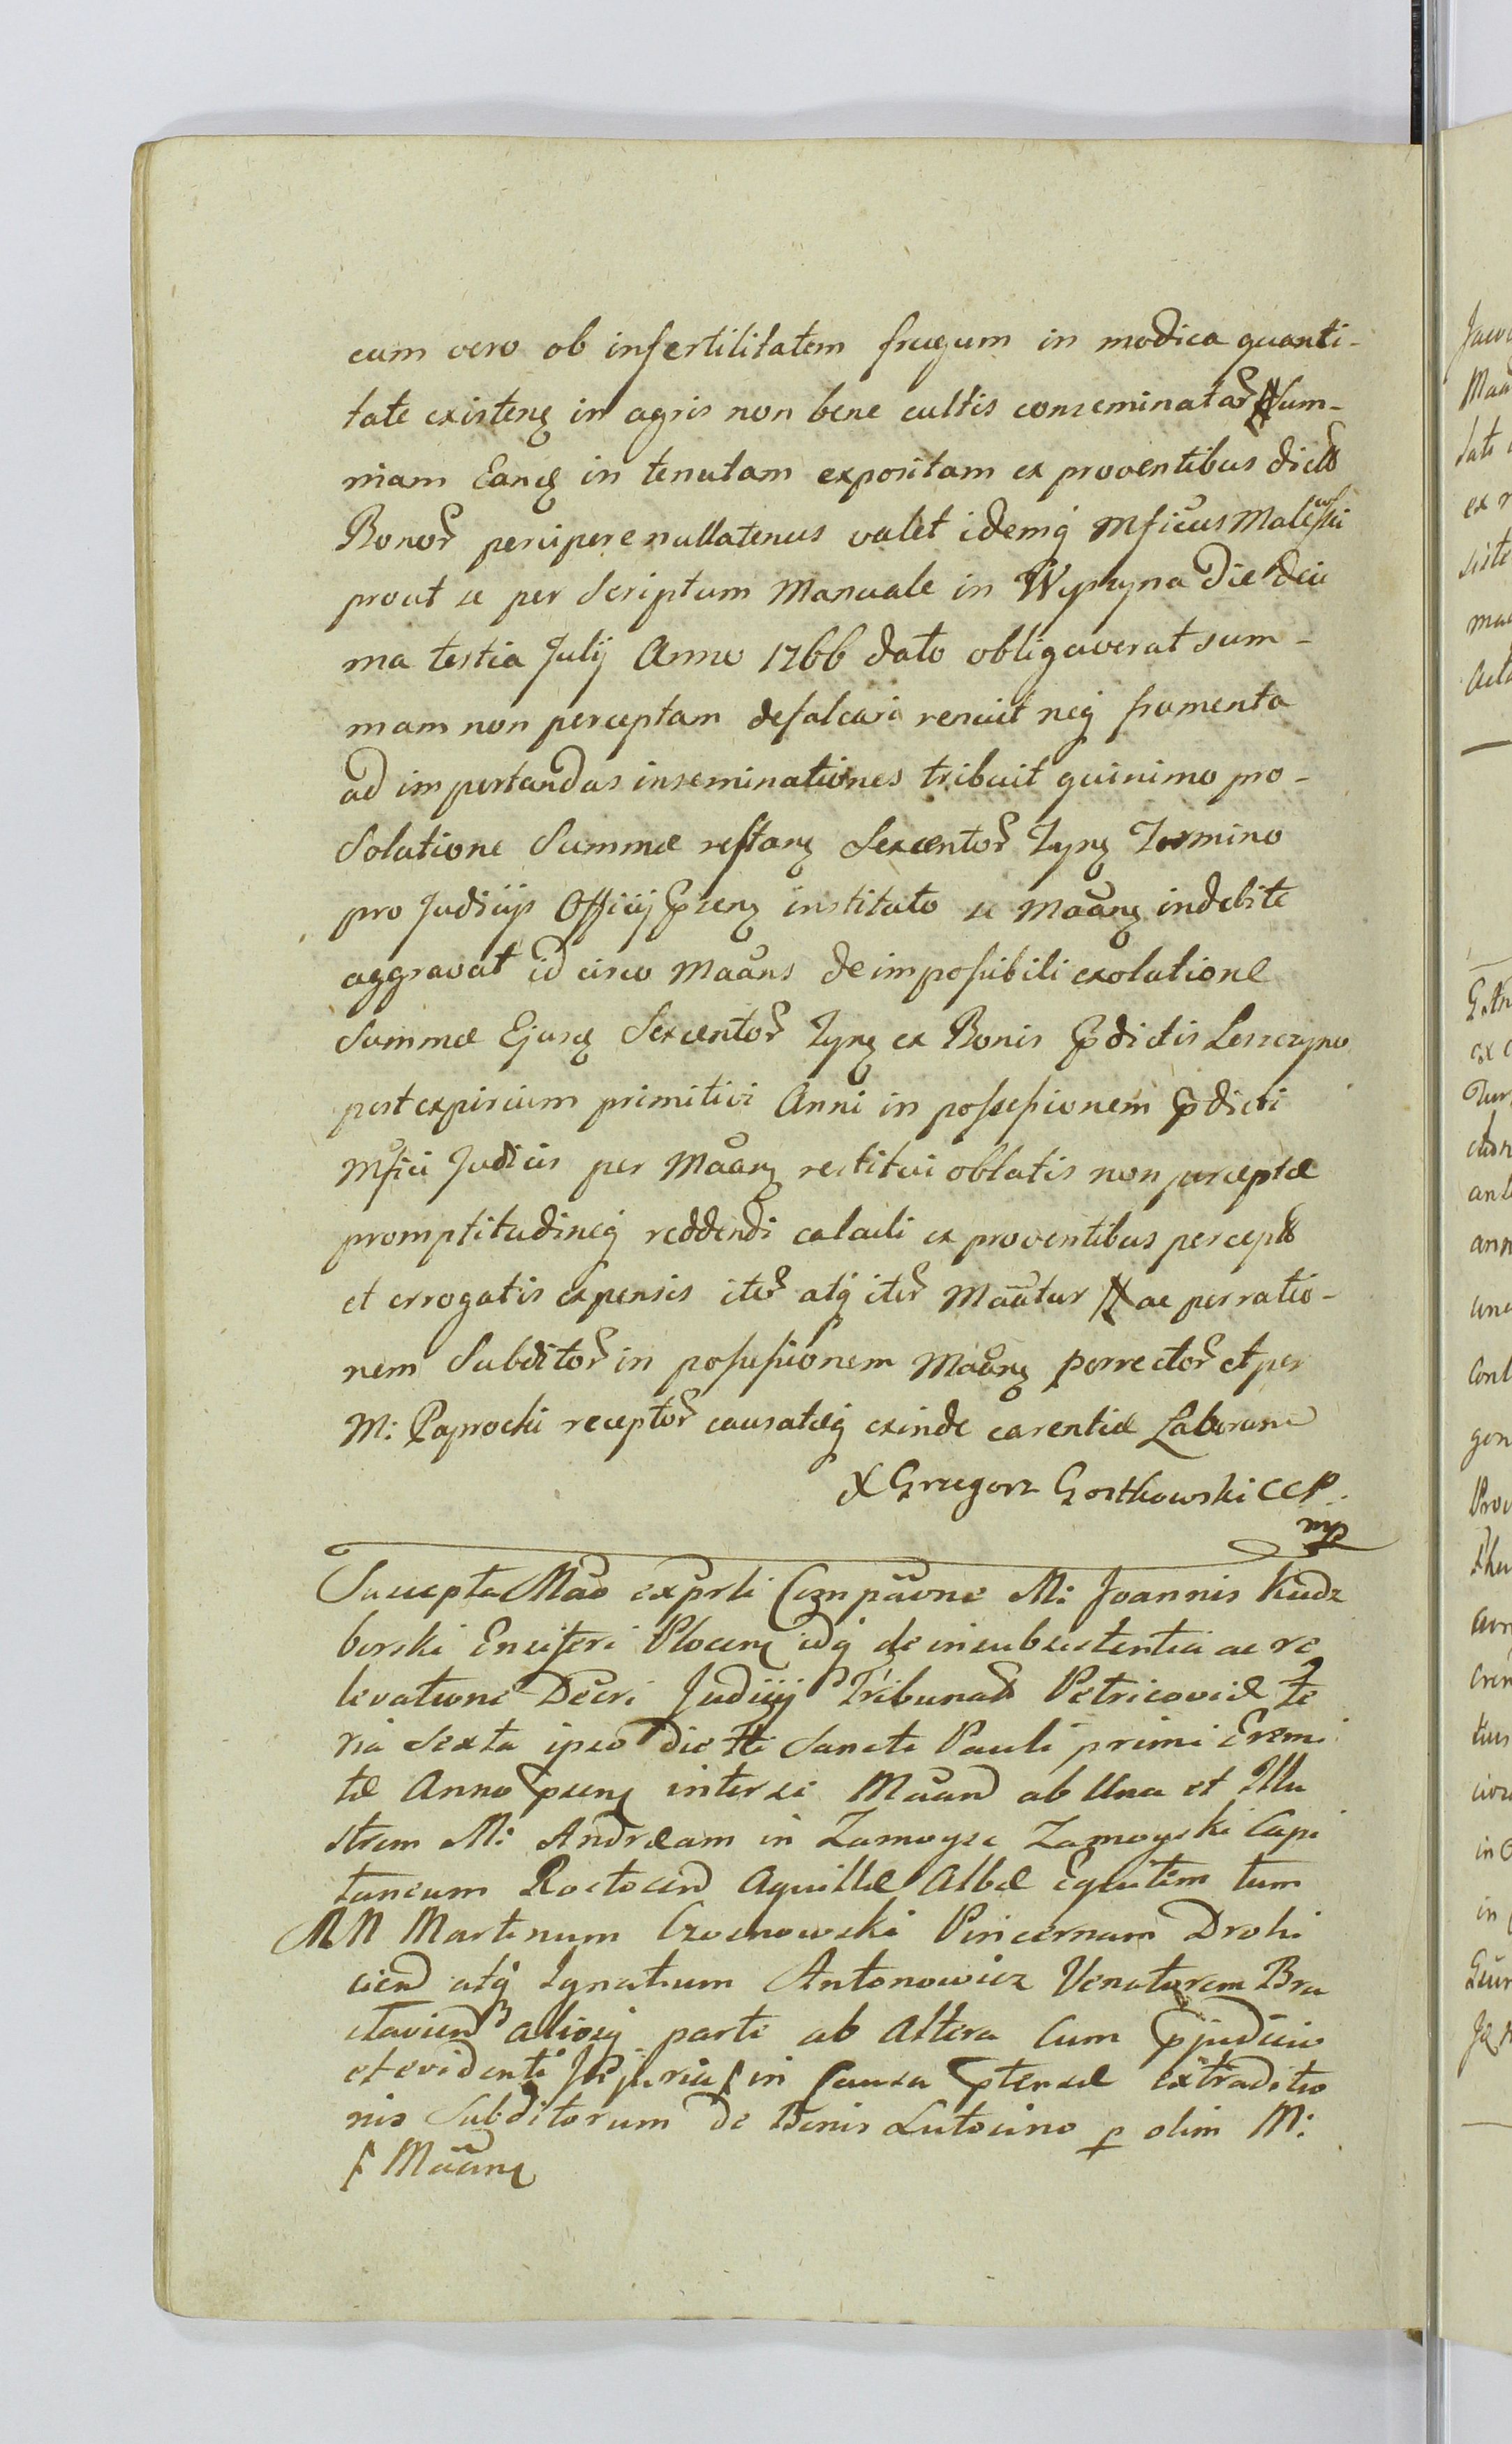 cum vero ob infertilitatem frugum in modica quanti-
tate existenȝ in agris non bene cultis conseminatar̃ Sum-
mam Eandȝ in tenutam expositam ex proventibus dictis
Bonor̃ percipere nullatenus valet idemqȝ Mficus Malewski
prout se per Scriptum Manuale in Wyszyna Die deci
ma tertia Julij Anno 1766 dato obligaverat sum-
mam non perceptam defalcari renuit neqȝ frumenta
ad impertandas inseminationes tribuit quinimo pro-
Solutione Summæ restanȝ Sexcentor̃ Tynȝ Termino
pro Judicijs Officij p̃senȝ instituto se Mãanȝ indebite
aggravat id circo Mãans de impossibili exolutione
Summæ Ejusdȝ Sexcentor̃ Tynȝ ex Bonis p̃dictis Leszczyno
post expirium primitivi Anni in possessionem p̃dicti
Mfici Judicis per Mãanȝ restitui oblatis non perceptæ
promptitudineqȝ reddendi calculi ex proventibus perceptis
et errogatis expensis iter̃ atqȝ iter̃ Mãatur ac per ratio-
nem Subditor̃ in possessionem Mãanȝ porrector̃ et per
M: Paprocki receptor̃ causatæqȝ exinde carentiæ Laborum
X Grzegorz Gostkowski CCP.
mp
Suscepta Mão ex p̃rti Compãone M: Joannis Kudz
borski Ensiferi Plocenȝ idqȝ de insubsistentia ac re
levatione Decri Judicij Tribunalis Petricoviæ fe
ria Sexta ipso die fti Sancti Pauli primi Eremi
tæ Anno p̃senȝ inter se Mãand ab Una et Illu
strem M: Andræam in Zamoysc Zamoyski Capi
taneum Rostocend Aquillæ Albæ Equitem tum
MM Martinum Czosnowski Pincernam Drohi
ciend atqȝ Ignatium Antonowicz Venatorem Bra
claviend aliosqȝ parte ab Altera Cum p̃judicio
et evidenti Injuria in Causa p̃tensæ extraditio
nis Subditorum de Bonis Lutocino p olim M:
Mãanȝ